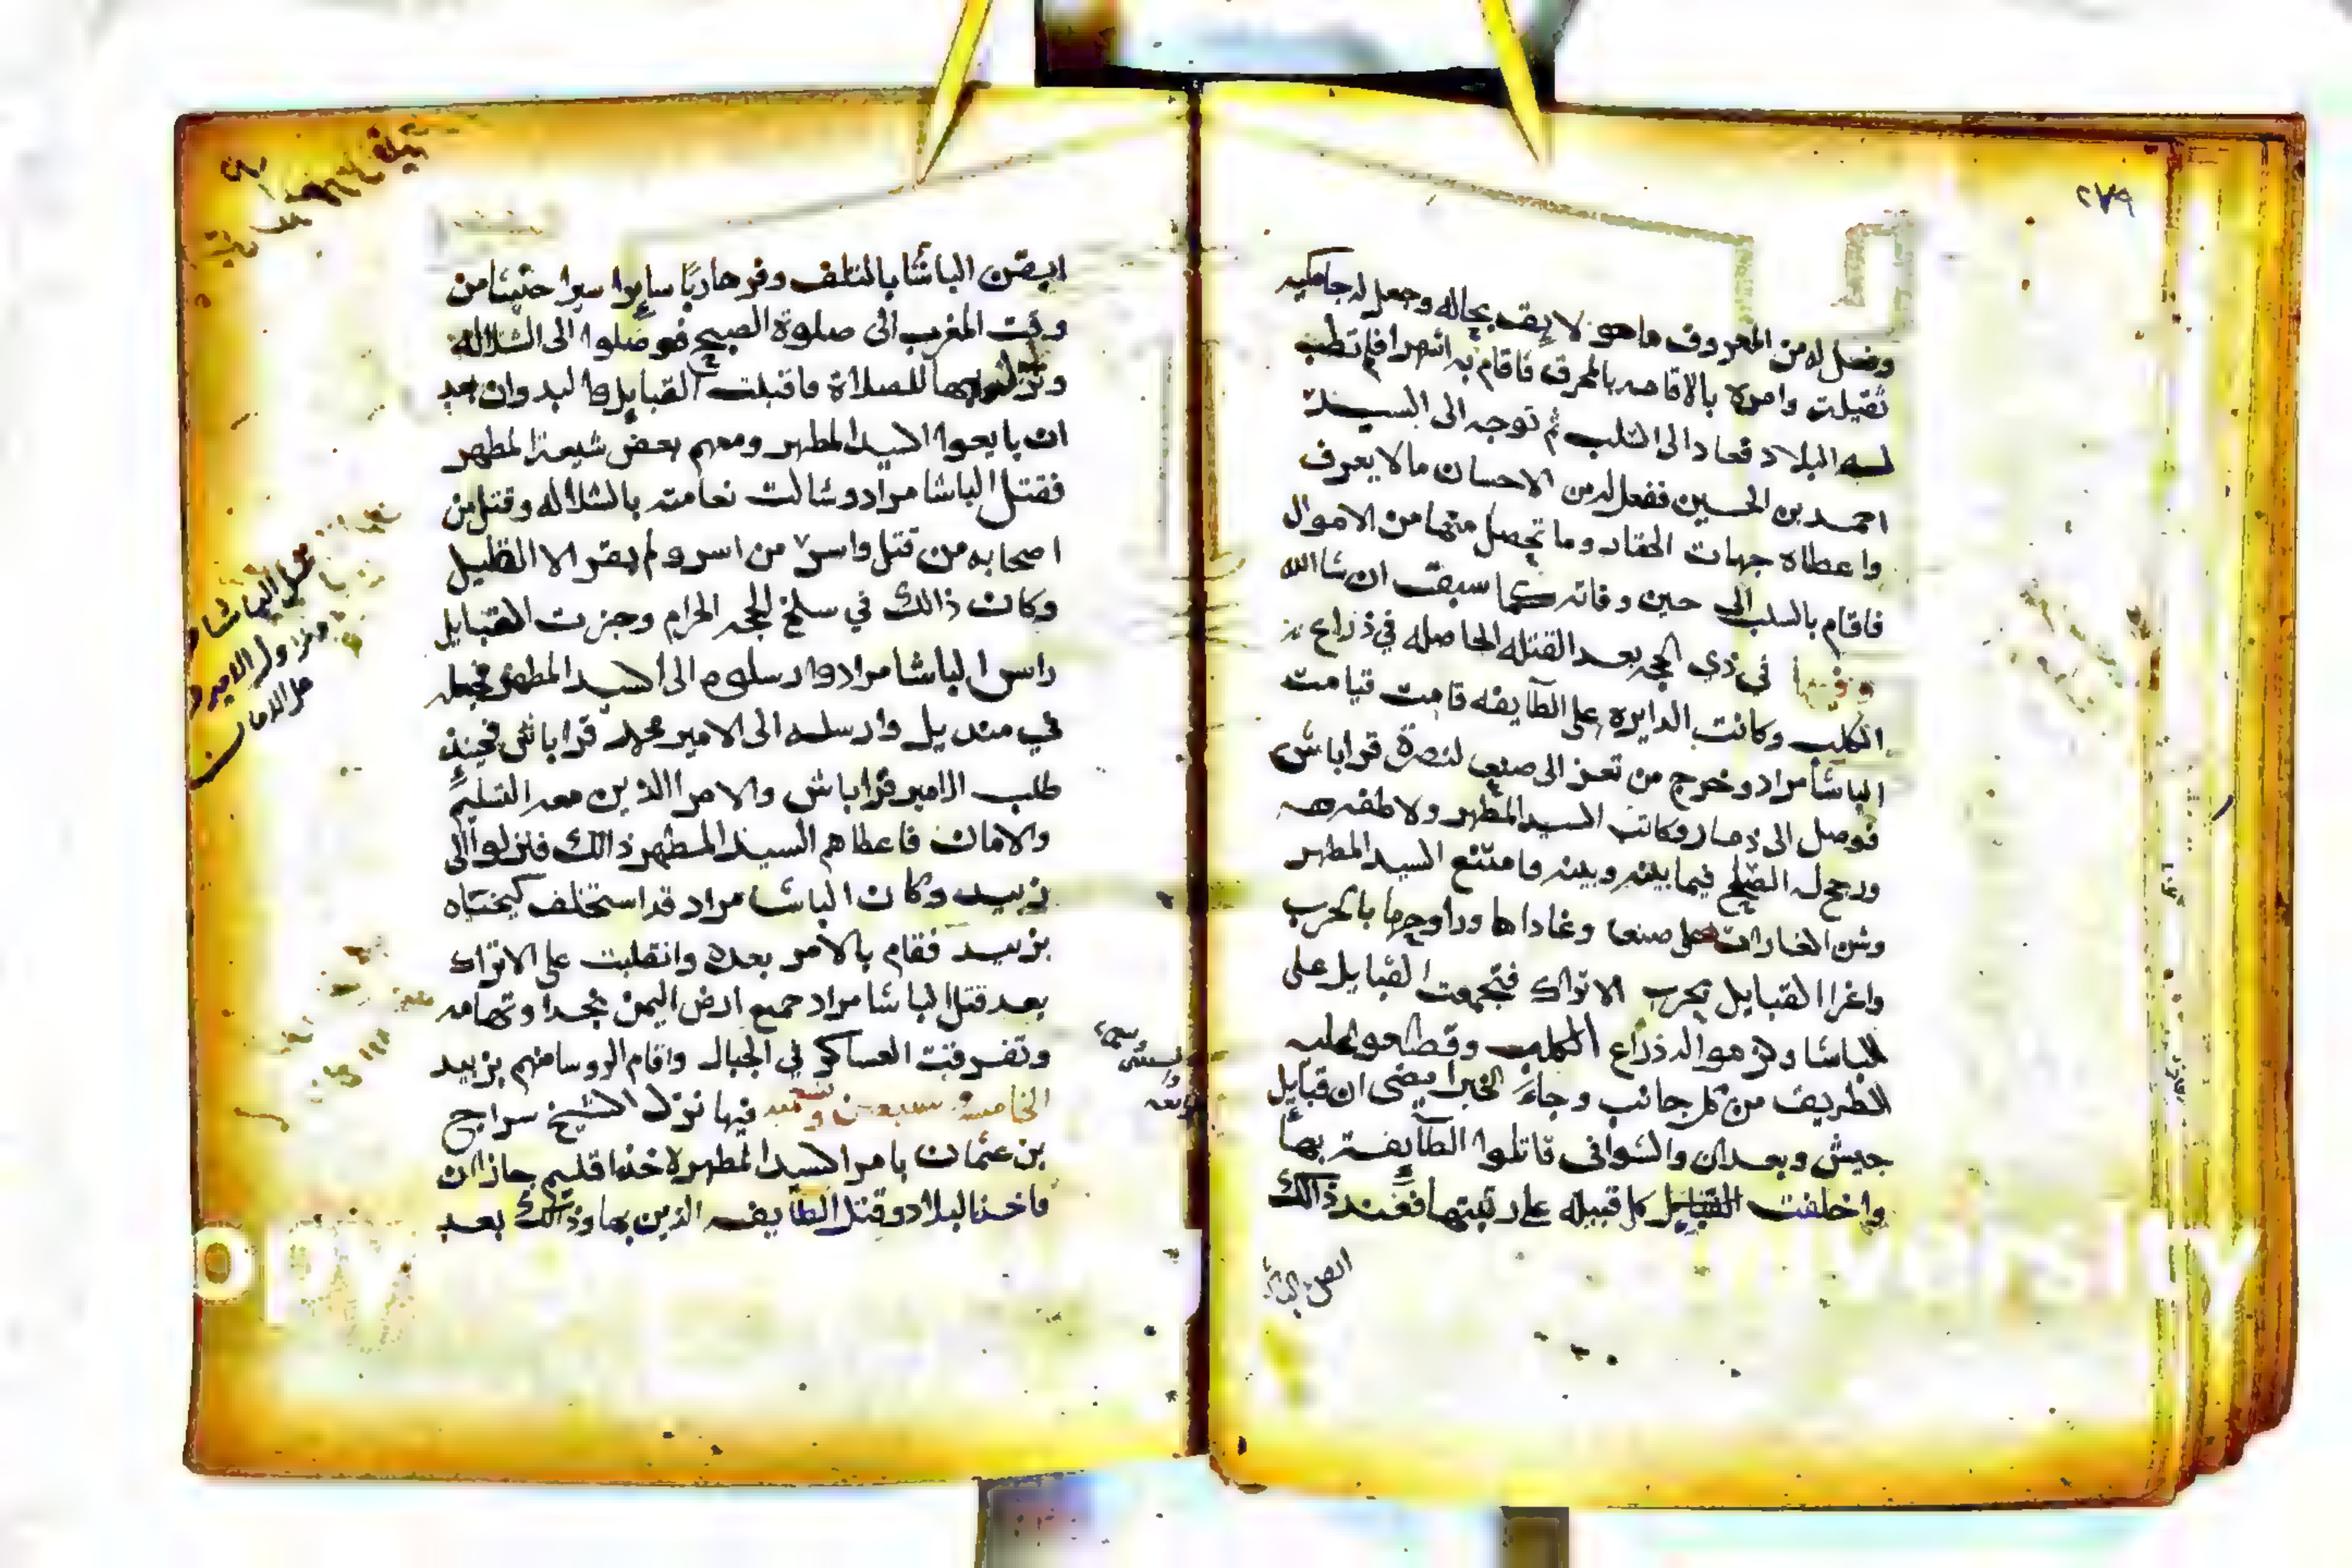 ٢٧٩
وفعل له من المعروف ما هو لا يقف بحاله وجعل له جامكيه
ثقيلت وامره بالاقامه بالمحرق فاقام به اشهرا فلم تطب
له البلاد فعاد الى السلب ثم توجه الى السيد
احمد بن الحسين ففعل له من الاحسان ما لا يعرف
واعطاه جهات الحقار وما تحصل منها من الاموال
فاقام بالسلب الى حين وفاته كما سبقت ان شا الله
وفيها في ذي الحجه بعد القتله الحاصله في ذراع
الكلب وكانت الدايره على الطايفه قامت قيامت
الباشا مراد وخرج من تعز الى صنعى لنصرة قراباش
فوصل الى ذمار وكاتب السيد المطهر ولاطفه
ورجح له الصلح فيما بينه وبينه وامتنع السيد المطهر
وشن الغارات على صنعا وغاداها وراوحها بالحرب
واغرا القبايل بحرب الاتراك فتجمعت القبايل على
الباشا وهو الذراع الكلب وقطعو عليه
الطريف من كل جانب وجاء الخبر ايضى ان قبايل
جيش وبعدان والشوافى قاتلوا الطايفت بها
واخلفت القبايل كل قبيله على رتبتها فعند ذالك
ايقن الباشا
ايقن الباشا بالتلف وفر هاربًا سايرا سيرا حثيثا من
وقت المغرب الى صلوة الصبح فوصلوا الى الشلاله
ونزلوا بها للصلاة فاقبلت القبايل والبدوان بعد
ان بايعوا السيد المطهر ومعهم بعض شيعة المطهر
فقتل الباشا مراد وشالت نعامته بالشلاله وقتل من
اصحابه من قتل واسر من اسر ولم يبقر الا القليل
وكان ذالك في سلخ الحجه الحرام وجزت القبايل
راس الباشا مراد وارسلوه الى السيد المطهر فجعله
في منديل وارسله الى الامير محمد قراباشى فحينئذ
طلب الامير قراباش والامرا الذين معه التسليم
والامان فاعطاهم السيد المطهر ذالك فنزلوا الى
زبيد وكان الباشا مراد قد استخلف كيخيتاه
بزبيد فقام بالامر بعده وانقلبت على الاتراك
بعد قتل الباشا مراد جميع ارض اليمن نجدا وتهامه
وتفرقت العساكر في الجبال واقام الروسا منهم بزبيد
الخامسة سبعين فيها نزل الشيخ سراج
بن عثمان بامر السيد المطهر لاخذ اقليم جازان
فاخذ البلاد وقتل الطايفه الذين بها وذالك بعد
الباشا
نزول الامير
الامان